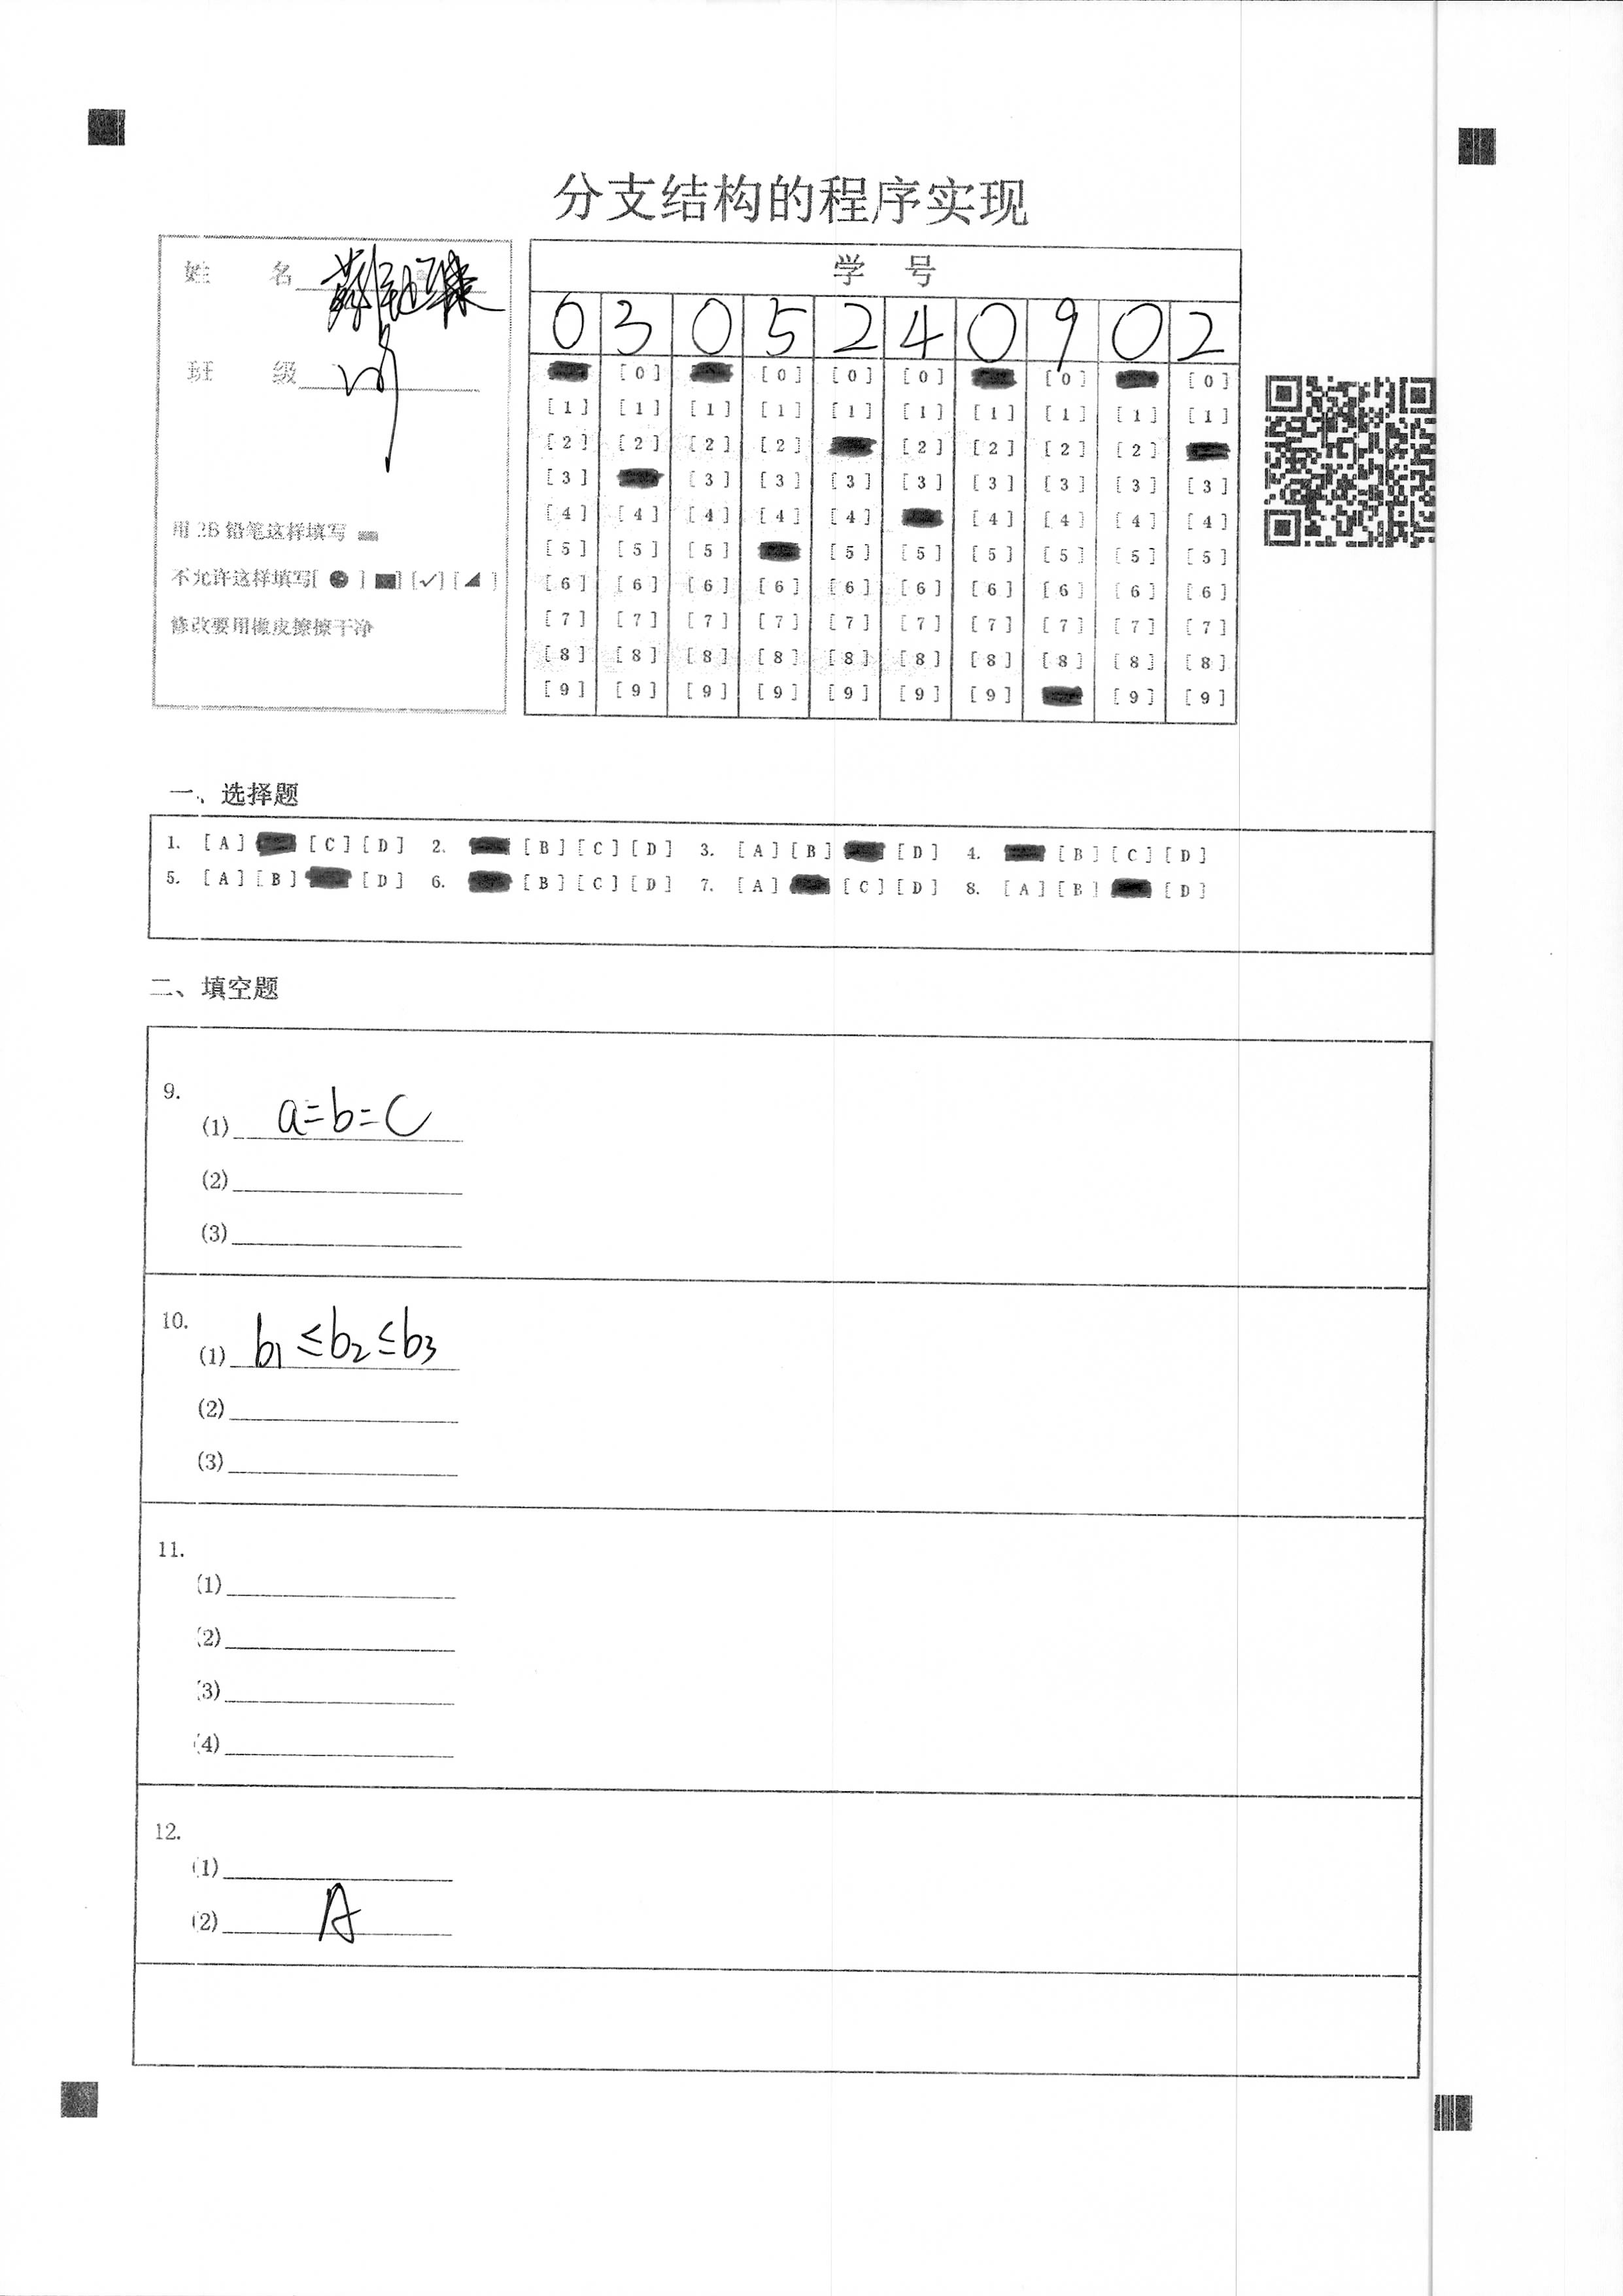 分支结构的程序实现
姓 名
班 级
用 2B 铅笔这样填写
不允许这样填写[ ● ] ■] [✓] [◢ ]
修改要用橡皮擦擦干净
学 号
0 3 0 5 2 4 0 9 0 2
[0] [0] [0] [0] [0] [0]
[1] [1] [1] [1] [1] [1] [1] [1] [1] [1]
[2] [2] [2] [2] [2] [2] [2] [2]
[3] [3] [3] [3] [3] [3] [3] [3] [3]
[4] [4] [4] [4] [4] [4] [4] [4] [4]
[5] [5] [5] [5] [5] [5] [5] [5] [5]
[6] [6] [6] [6] [6] [6] [6] [6] [6] [6]
[7] [7] [7] [7] [7] [7] [7] [7] [7] [7]
[8] [8] [8] [8] [8] [8] [8] [8] [8] [8]
[9] [9] [9] [9] [9] [9] [9] [9] [9]
一、选择题
1. [A] [C] [D] 2. [B] [C] [D] 3. [A] [B] [D] 4. [B] [C] [D]
5. [A] [B] [D] 6. [B] [C] [D] 7. [A] [C] [D] 8. [A] [B] [D]
二、填空题
9.
(1) a=b=c
(2)
(3)
10.
(1) b1≤b2≤b3
(2)
(3)
11.
(1)
(2)
(3)
(4)
12.
(1)
(2) A